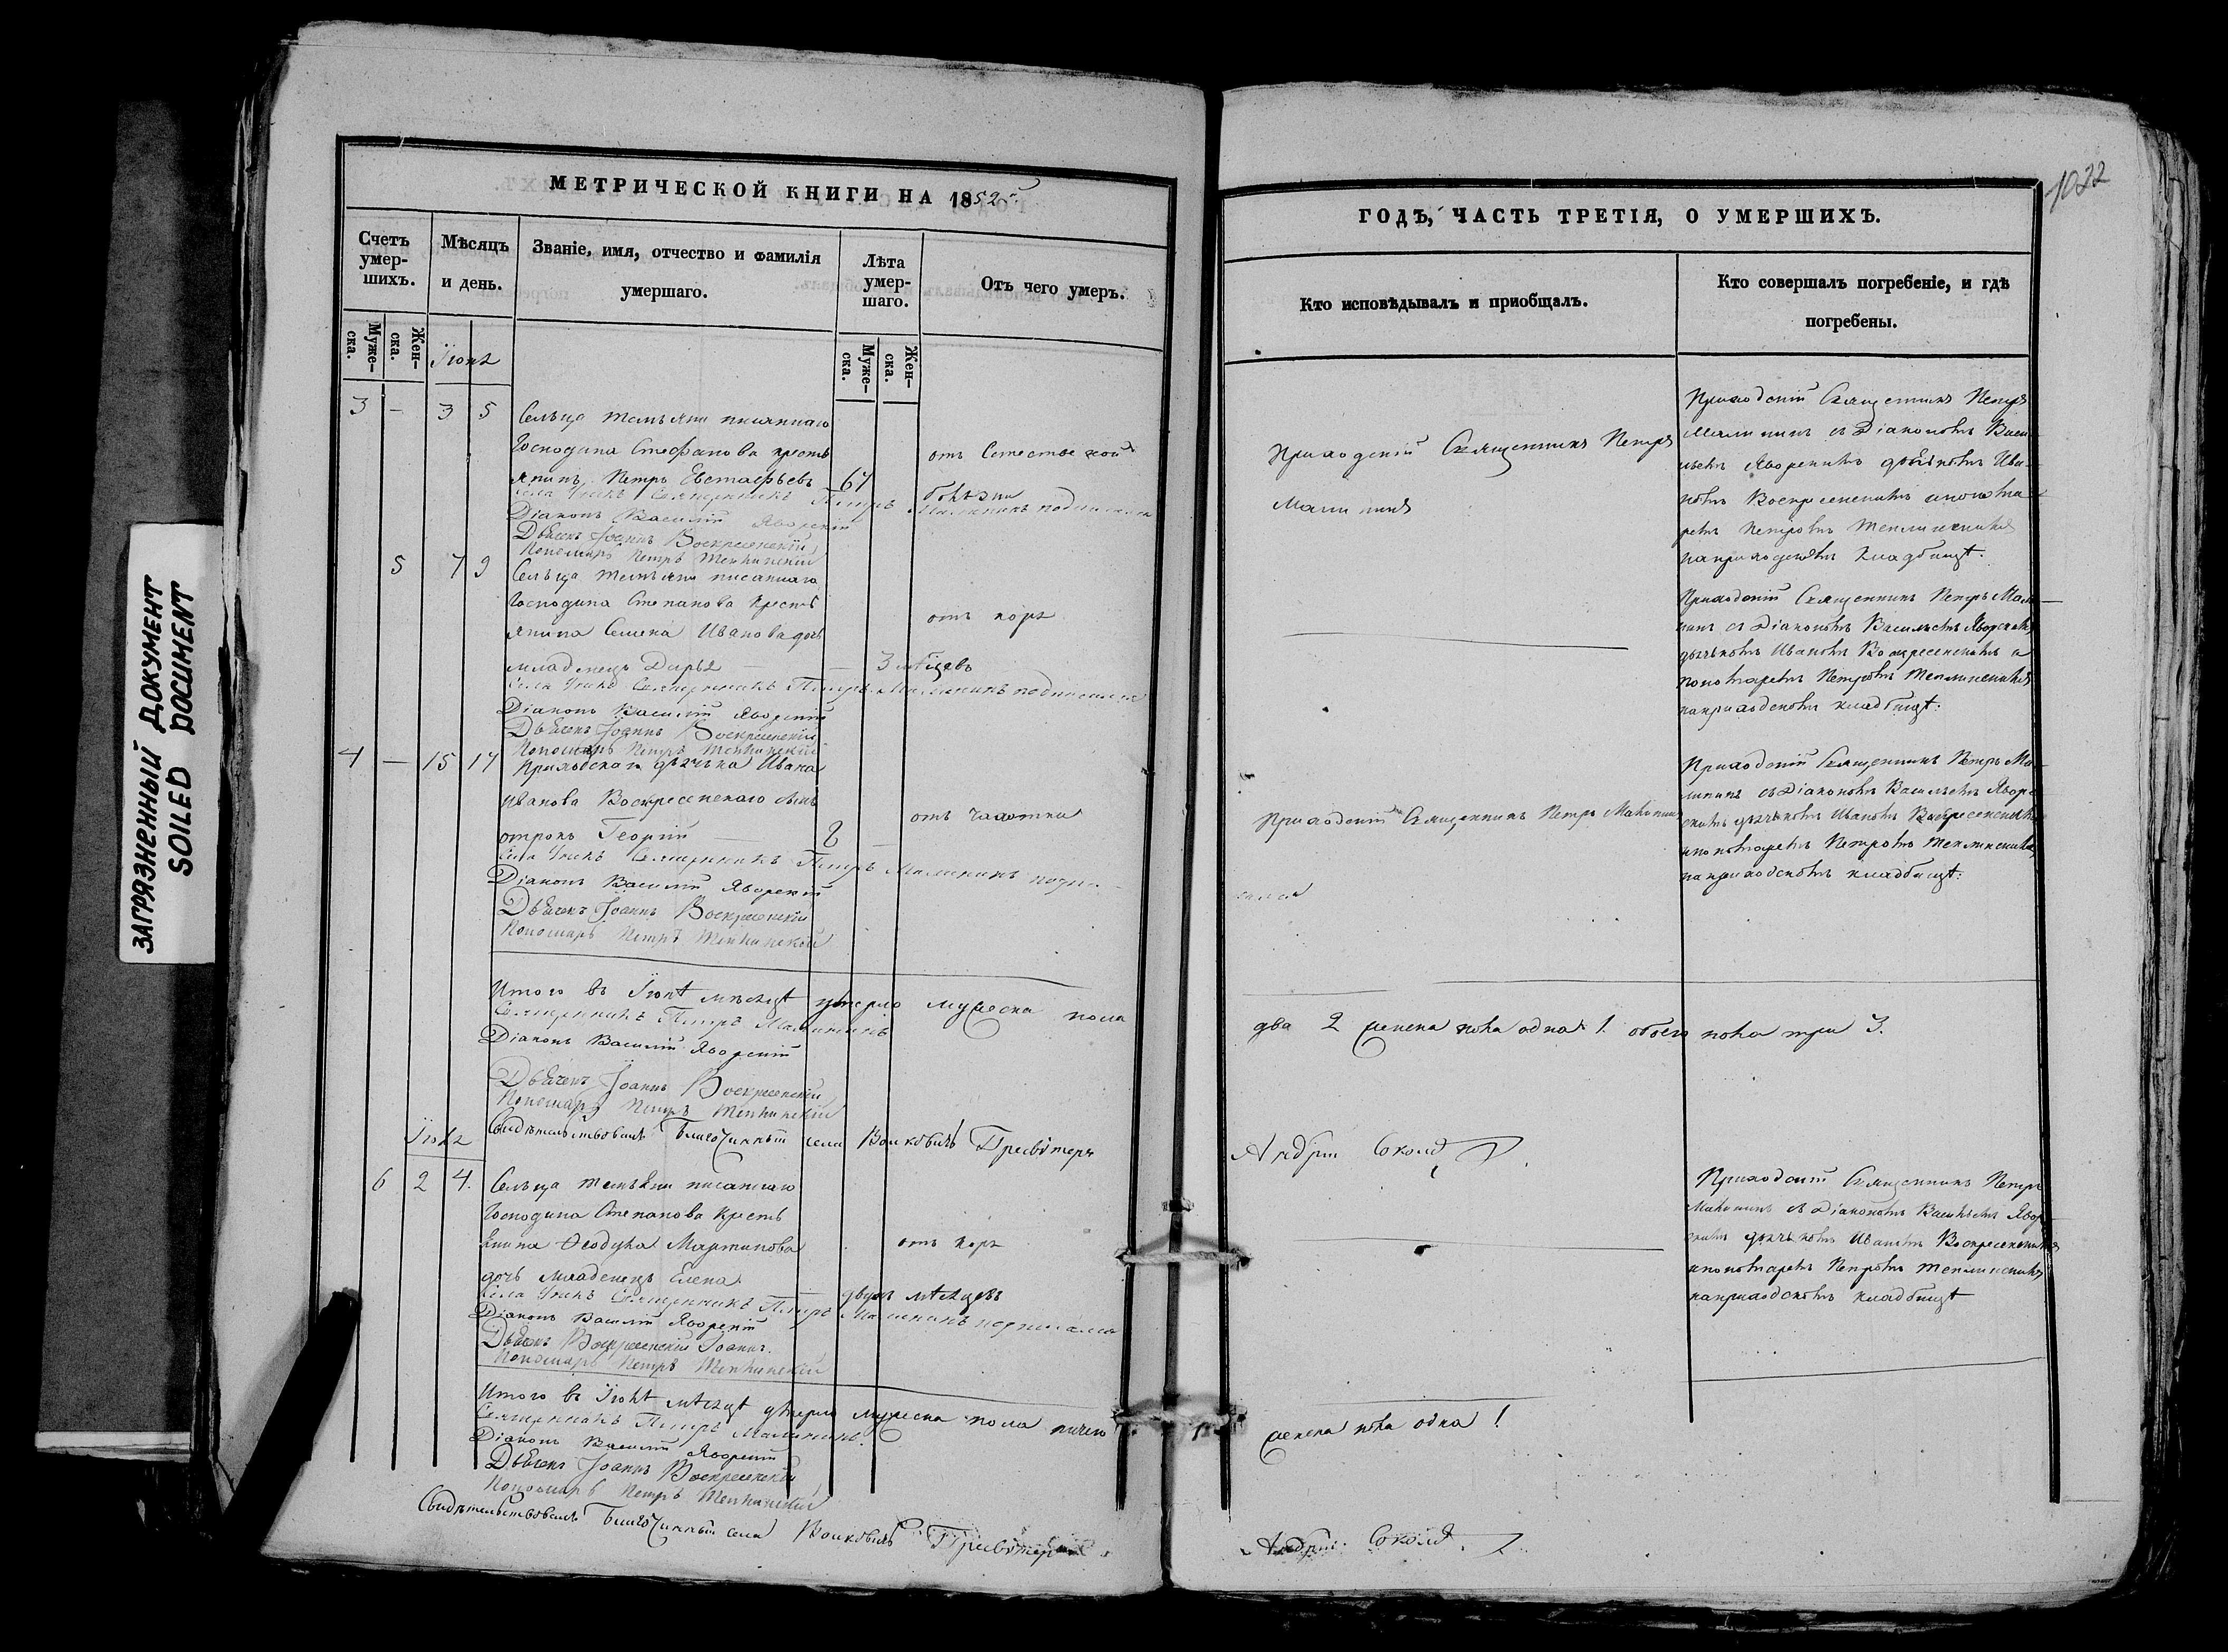 ЗАГРЯЗНЕННЫЙ ДОКУМЕНТ
SOILED DOCUMENT
МЕТРИЧЕСКОЙ КНИГИ НА 1852й
Счетъ умер-шихъ.
Мѣсяцъ и день.
Званіе, имя, отчество и фамилія умершаго.
Лѣта умер-шаго.
Отъ чего умеръ.
Муже-ска.
Жен-ска.
Муже-ска.
Жен-ска.
Іюнь
3 - 3 5
Сельца писаннаго
Господина Стефанова кресть
янинъ Петръ Евстафьевъ 67
отъ Естествен ной
болѣзни
Священникъ Петръ Малининъ подписался
Діаконъ Василій Яворскій
Дьячекъ Іоаннъ Воскресенскій
Пономарь Петръ
5 7 9
Сельца писаннаго
Господина Степанова кресть
янина Семена Иванова дочь
отъ коръ
младенецъ Дарья — — 3 мѣсяцевъ
Священникъ Петръ Малининъ подписался
Діаконъ Василій Яворскій
Дьячекъ Іоаннъ Воскресенскій
Пономарь Петръ
4 - 15 17
Приходскаго дьячька Ивана
Иванова Воскресенскаго сынъ
отъ чахотки
отрокъ Георгій — 8 —
Священникъ Петръ Малининъ подпи-
Діаконъ Василій Яворскій
Дьячекъ Іоаннъ Воскресенскій
Пономарь Петръ
Итого въ Іюнѣ мѣсяцѣ умерло мужеска пола
Священникъ Петръ Малининъ
Діаконъ Василій Яворскій
Дьячекъ Іоаннъ Воскресенскій
Пономарь Петръ
Свидѣтельствовалъ Благочинный села Пресвѵтеръ
Іюль
6 2 4.
Сельца писаннаго
Господина Степанова кресть
янина Мартинова
отъ коръ
дочь младенецъ Елена
двухъ мѣсяцевъ
Священникъ Петръ Малининъ подписался
Діаконъ Василій Яворскій
Дьячекъ Воскресенскій Іоаннъ.
Пономарь Петръ
Итого въ Іюлѣ мѣсяцѣ умерло мужеска пола ничего
Священникъ Петръ Малининъ.
Діаконъ Василій Яворскій
Дьячекъ Іоаннъ Воскресенскій
Пономарь Петръ
Свидѣтельствовалъ Благочинный села Пресвѵтеръ
1022
ГОДЪ, ЧАСТЬ ТРЕТІЯ, О УМЕРШИХЪ.
Кто исповѣдывалъ и пріобщалъ.
Кто совершалъ погребеніе, и гдѣ погребены.
Приходскій Священникъ Петръ
Малининъ
Приходскій Священникъ Петръ
Малининъ съ Діакономъ Васи-
льемъ Яворскимъ дьячкомъ Ива-
номъ Воскресенскимъ и понома-
ремъ Петромъ
на приходскомъ кладбищѣ.
Приходскій Священникъ Петръ Мали-
нинъ съ Діакономъ Васильемъ Яворскимъ
дьячькомъ Иваномъ Воскресенскимъ и
пономаремъ Петромъ
на приходскомъ кладбищѣ.
Приходскій Священникъ Петръ Малининъ
сался
Приходскій Священникъ Петръ Ма-
лининъ съ Діакономъ Васильемъ Яворс-
кимъ дьячькомъ Иваномъ Воскресенскимъ
и пономаремъ Петромъ
на приходскомъ кладбищѣ.
два 2 женска пола одна 1. обоего пола три 3.
Соколовъ
Приходскій Священникъ Петръ
Малининъ съ Діакономъ Васильемъ Явор-
скимъ дьячькомъ Иваномъ Воскресенскимъ
и пономаремъ Петромъ
на приходскомъ кладбищѣ
женска пола одна 1
Соколовъ